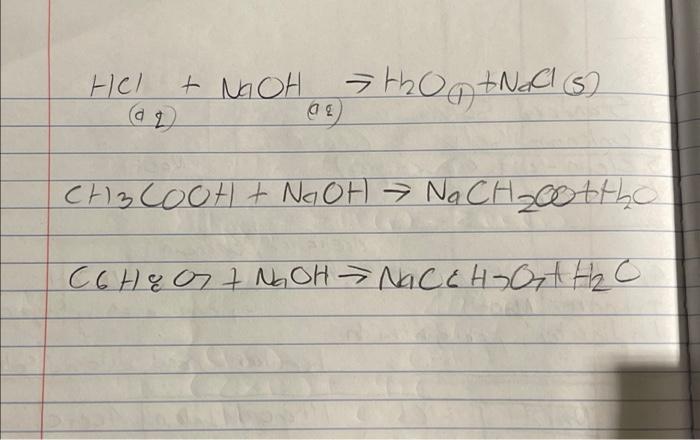 HCl + NaOH → H2O (l) + NaCl (s)
(aq) (aq)
CH3COOH + NaOH → NaCH2COO + H2O
C6H8O7 + NaOH → NaC6H7O7 + H2O